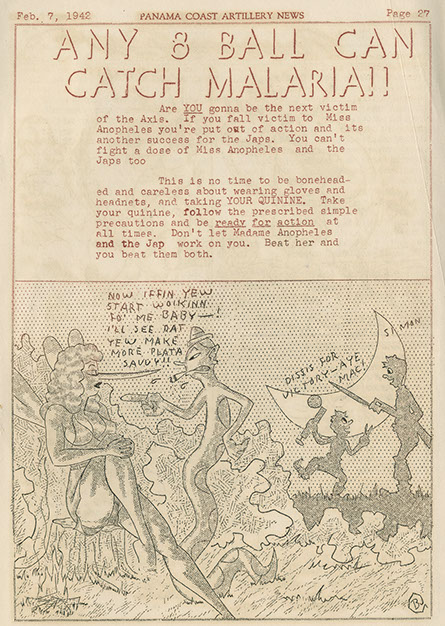 Feb. 7, 1942
PANAMA COAST ARTILLERY NEWS
Page 27
ANY 8 BALL CAN
CATCH MALARIA!!
Are YOU gonna be the next victim
of the Axis. If you fall victim to Miss
Anopheles you're put out of action and its
another success for the Japs. You can't
fight a dose of Miss Anopheles and the
Japs too
This is no time to be bonehead-
ed and careless about wearing gloves and
headnets, and taking YOUR QUININE. Take
your quinine, follow the prescribed simple
precautions and be ready for action at
all times. Don't let Madame Anopheles
and the Jap work on you. Beat her and
you beat them both.
NOW IFFIN YEW
START WOIKINN
FO' ME BABY—!
I'LL SEE DAT
YEW MAKE
MORE PLATA
SAVVY!!
DISSIS FOR
VICTORY—AYE
MAC!
SI MON